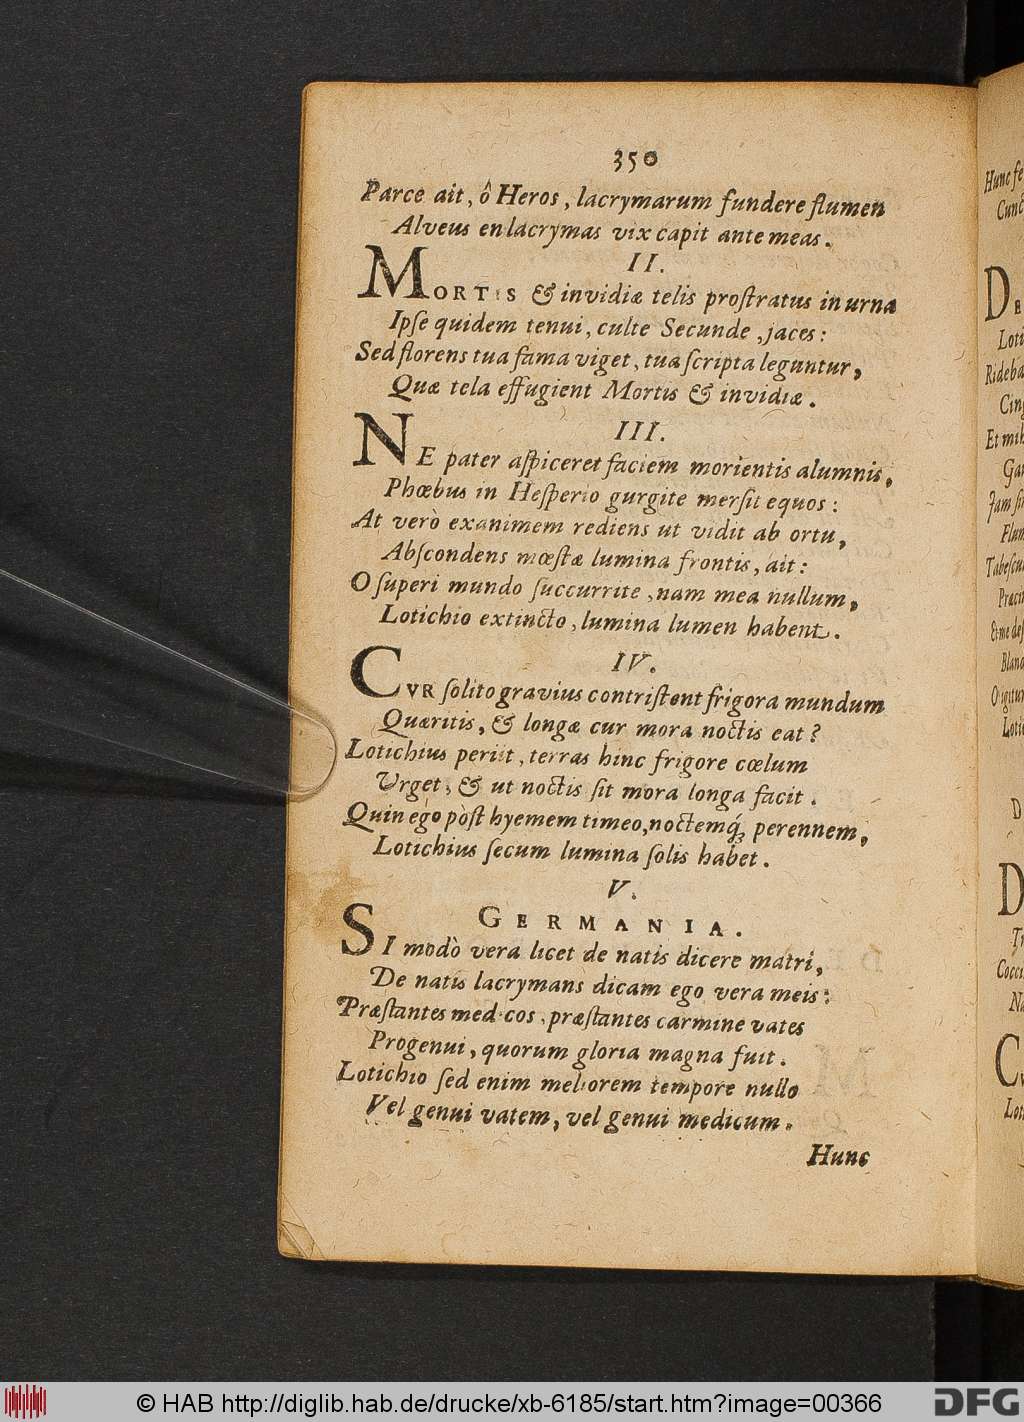 350
Parce ait, ô Heros, lacrymarum fundere flumen
Alveus en lacrymas vix capit ante meas.
II.
MORTIS & invidiæ telis proſtratus in urna
Ipſe quidem tenui, culte Secunde, jaces:
Sed florens tua fama viget, tua ſcripta leguntur,
Quæ tela effugient Mortis & invidiæ.
III.
NE pater aſpiceret faciem morientis alumnis,
Phœbus in Heſperio gurgite merſit equos:
At verò exanimem rediens ut vidit ab ortu,
Abſcondens mœſtæ lumina frontis, ait:
O ſuperi mundo ſuccurrite, nam mea nullum,
Lotichio extincto, lumina lumen habent.
IV.
CVR ſolito gravius contriſtent frigora mundum
Quæritis, & longæ cur mora noctis eat?
Lotichius periit, terras hinc frigore cœlum
Urget, & ut noctis ſit mora longa facit.
Quin ego pòſt hyemem timeo, noctemq́; perennem,
Lotichius ſecum lumina ſolis habet.
V.
GERMANIA.
SI modò vera licet de natis dicere matri,
De natis lacrymans dicam ego vera meis:
Præſtantes medicos, præſtantes carmine vates
Progenui, quorum gloria magna fuit.
Lotichio ſed enim meliorem tempore nullo
Vel genui vatem, vel genui medicum.
Hunc
Hunc
D
Loti
Et mih
Jam
D
D
Coccí
Lot
© HAB http://diglib.hab.de/drucke/xb-6185/start.htm?image=00366
DFG